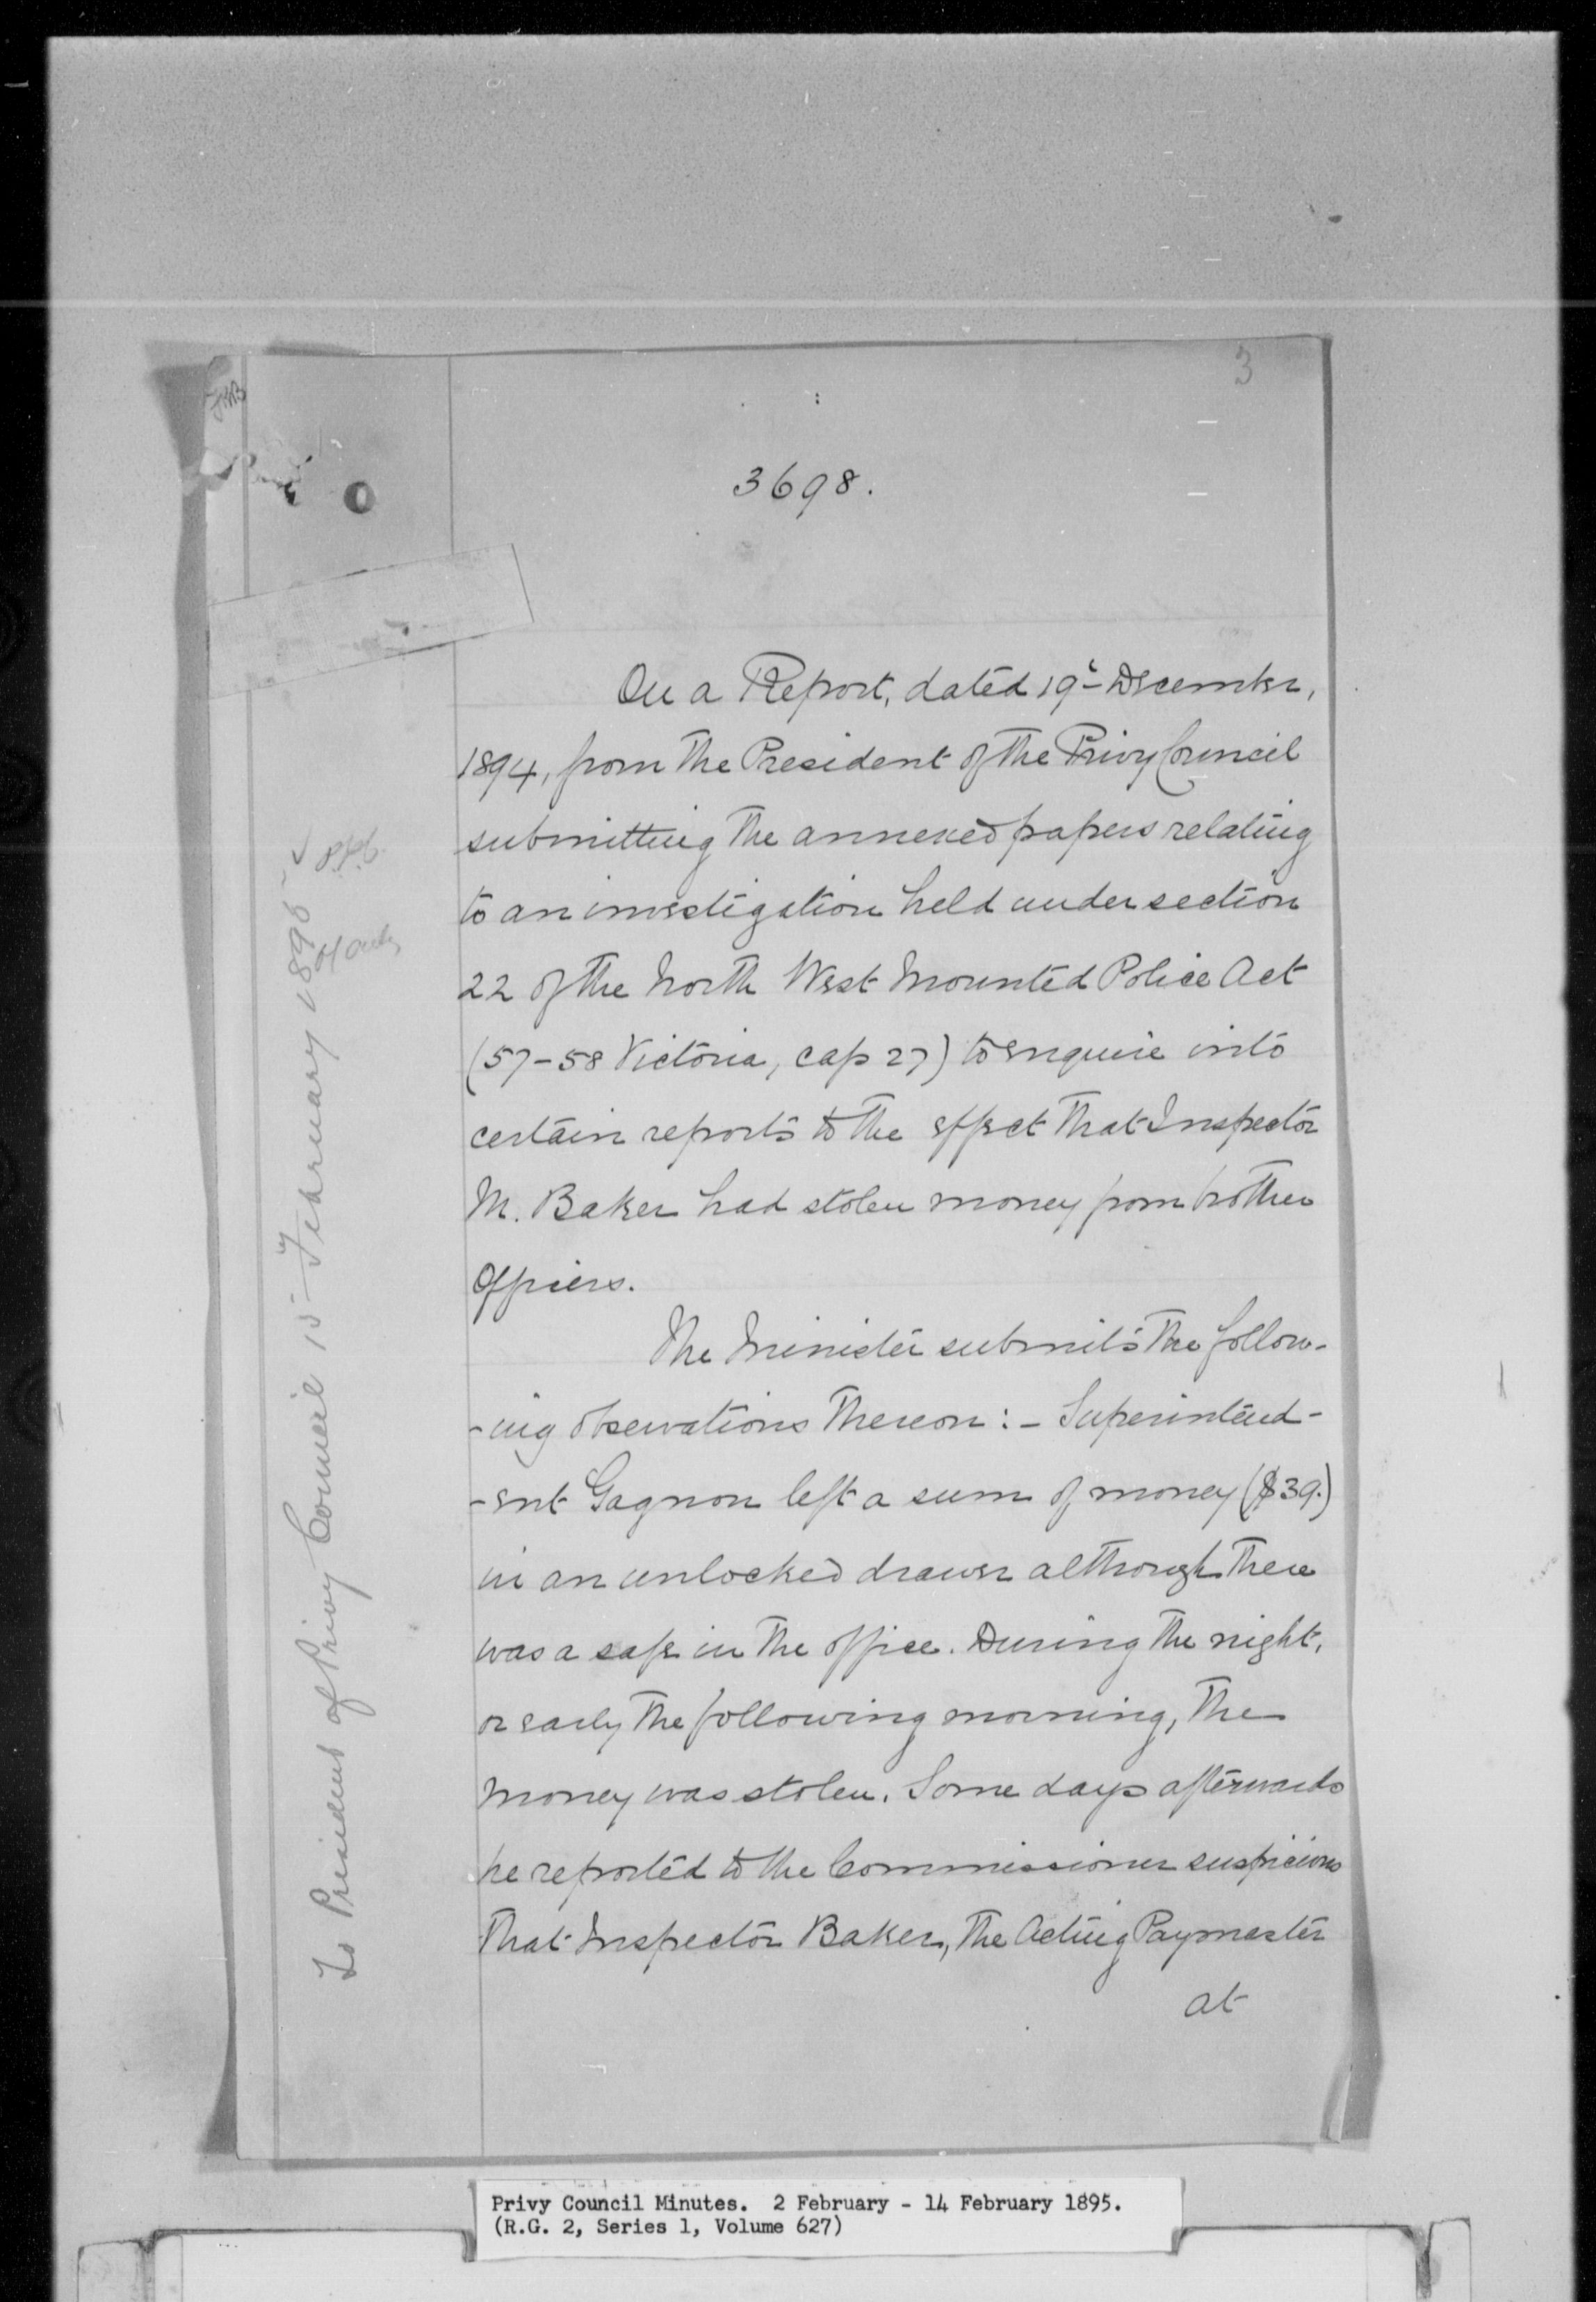 3
3698.
On a Report, dated 19th December,
1894, from the President of the Privy Council
submitting the annexed papers relating
to an investigation held under section
22 of the North West Mounted Police Act
(57-58 Victoria, cap 27) to enquire into
certain reports to the effect that Inspector
M. Baker had stolen money from brother
Officers.
The Minister submits the follow-
-ing observations thereon:- Superintend-
-ent Gagnon left a sum of money ($39.)
in an unlocked drawer although there
was a safe in the office. During the night,
or early the following morning, the
money was stolen. Some days afterwards
he reported to the Commissioner suspicions
that Inspector Baker, the Acting Paymaster
at
To President of Privy Council 15 February 1895
Privy Council Minutes. 2 February - 14 February 1895.
(R.G. 2, Series 1, Volume 627)